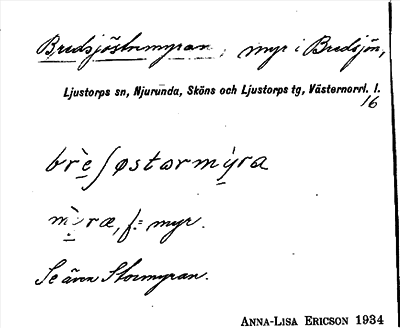 Bredsjöstormyran, myr i Bredsjön,
Ljustorps sn, Njurunda, Sköns och Ljustorps tg, Västernorrl. l.
16
brè̱ʃøstormỳ̱ra
mỳ̱ræ, f. = myr.
Se även Stormyran.
ANNA-LISA ERICSON 1934